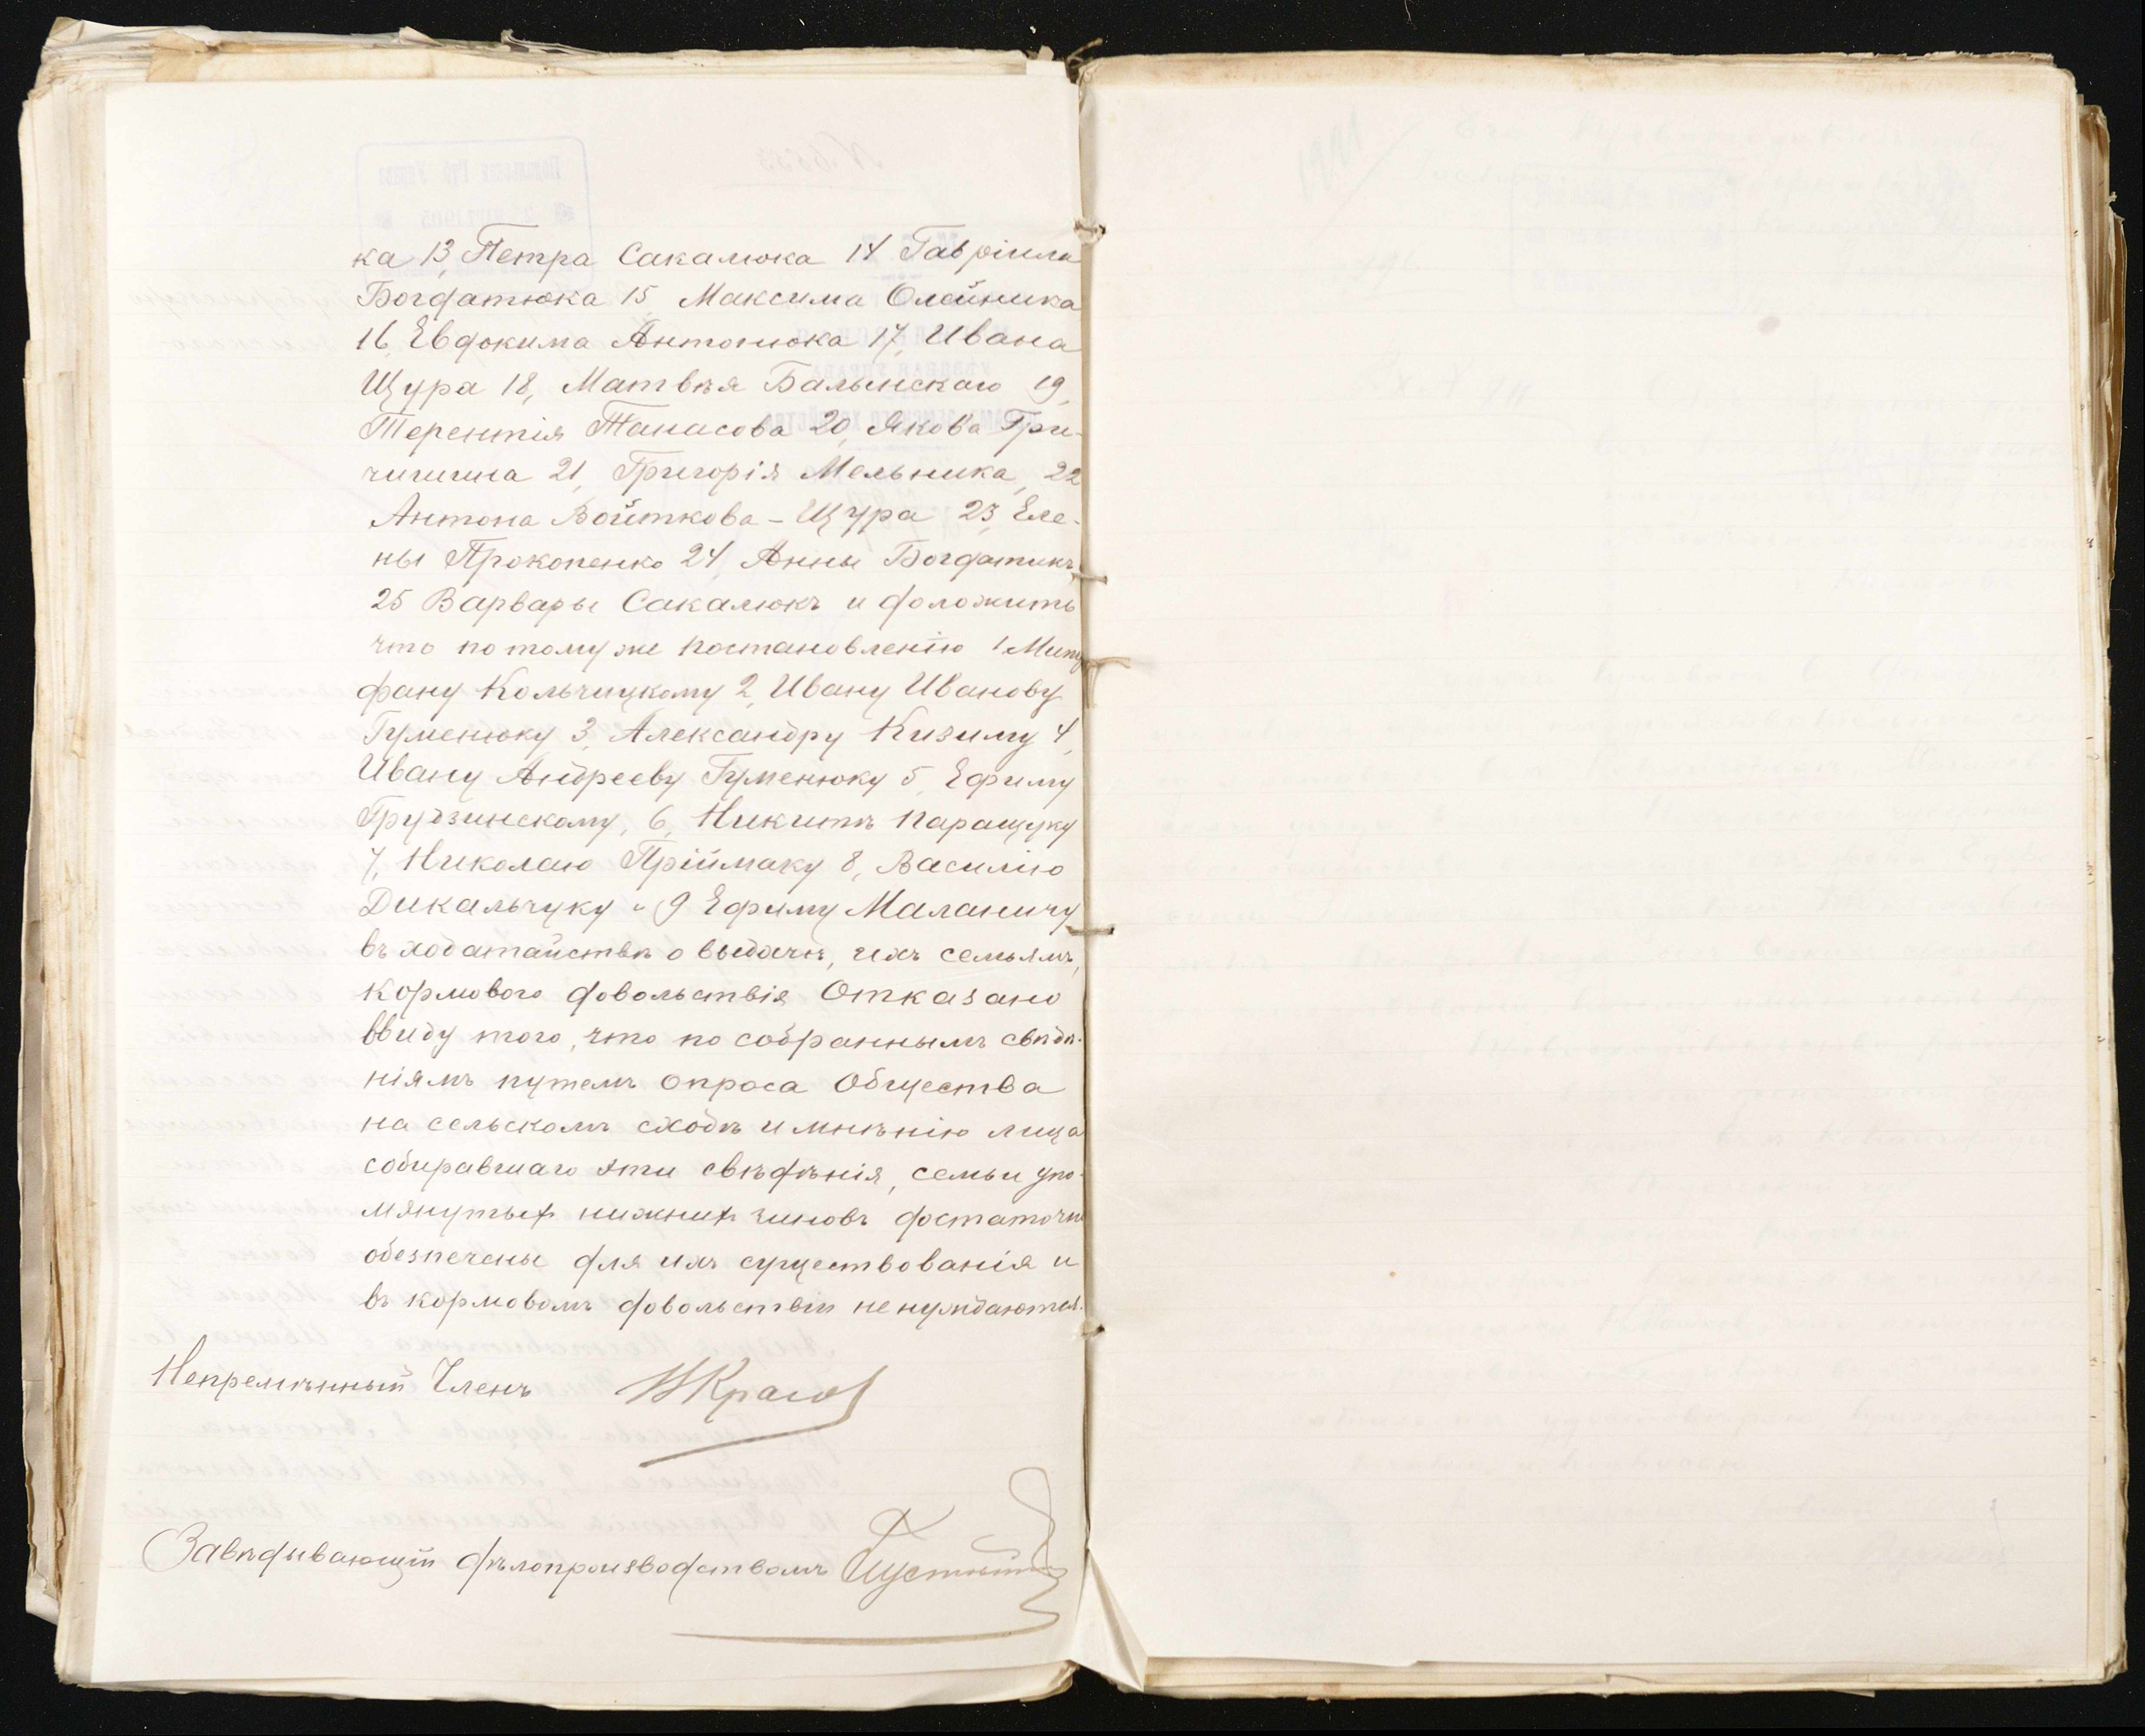 ка 13, Петра Сакалюка 14 Гавріила
Богдатюка 15, Максима Олейника
16, Евдокима Антонюка 17, Ивана
Щура 18, Матвѣя Балынскаго 19,
Терентія Танасова 20, Якова Гри-
чишина 21, Григорія Мельника, 22
Антона Войткова - Щура 23, Еле-
ны Прокопенко 24, Анны Богдатюкъ
25 Варвары Сакалюкъ и доложить
что по тому же постановленію 1, Митро
фану Кольчицкому 2, Ивану Иванову
Гуменюку 3, Александру Кизиму 4,
Ивану Андрееву Гуменюку 5, Ефиму
Грудзинскому, 6, Никитѣ Паращуку
7, Николаю Пріймаку 8, Василію
Дикальчуку и 9 Ефиму Маланичу
въ ходатайствѣ о выдачѣ, ихъ семьямъ,
кормового довольствія Отказано
ввиду того, что по собраннымъ свѣдѣ-
ніямъ путемъ опроса Общества
на сельскомъ сходѣ и мнѣнію лица
собиравшаго эти свѣдѣнія, семьи упо-
мянутых нижних чиновъ достаточно
обезпечены для ихъ существованія и
въ кормовомъ довольствіи не нуждаются.
Непремѣнный Членъ
Завѣдывающій дѣлопроизводствомъ